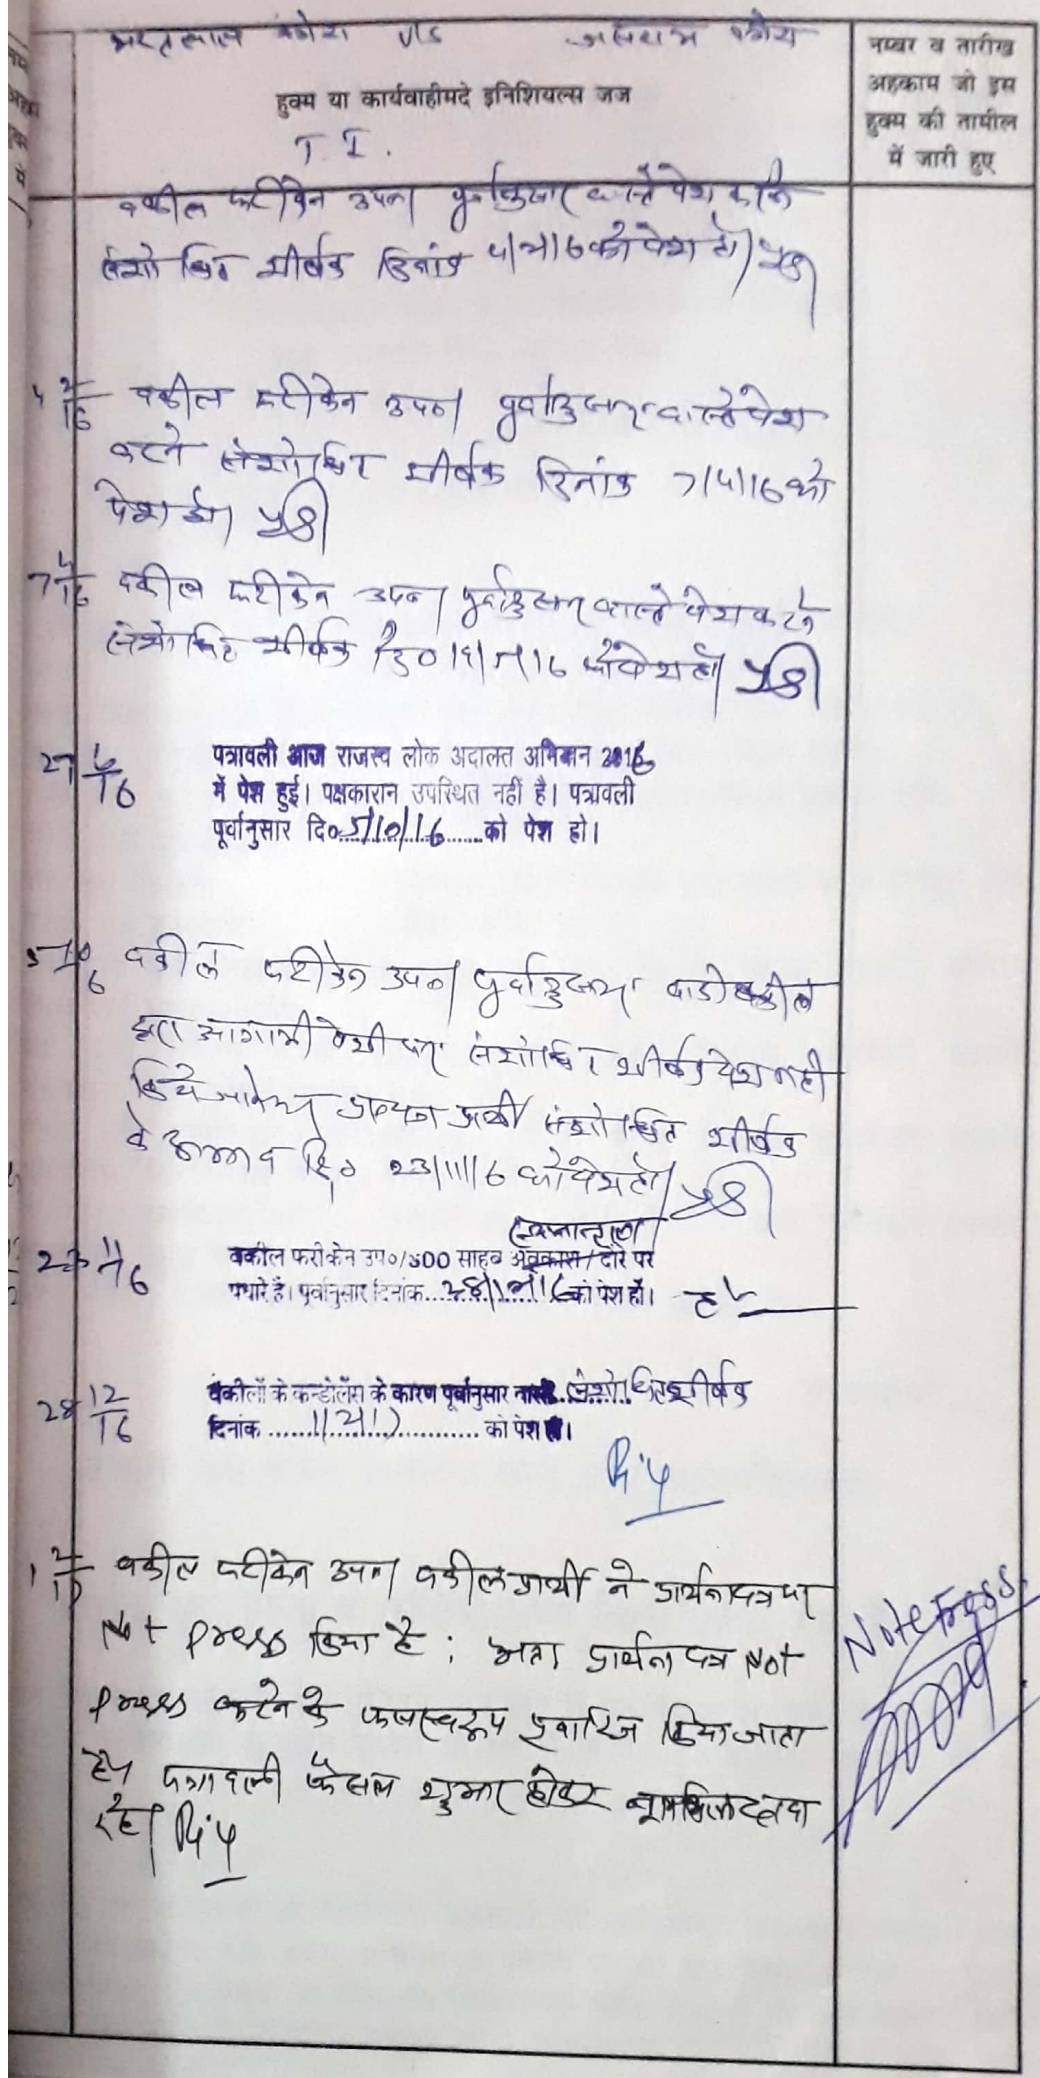 भरतलाल वगैरा V/S आसाराम वगैरा
नम्बर व तारीख
अहकाम जो इस
हुक्म की तामील
में जारी हुए
हुक्म या कार्यवाहीमदे इनिशियल्स जज
T. I.
वकील फरीकेन उप० पूर्वानुसार वास्ते पेश करने
संशोधित शीर्षक दिनांक 4/2/16 को पेश हो।
4 2/16 वकील फरीकेन उप० पूर्वानुसार वास्ते पेश
करने संशोधित शीर्षक दिनांक 7/4/16 को
पेश हो।
7 4/16 वकील फरीकेन उप० पूर्वानुसार वास्ते पेश करने
संशोधित शीर्षक दि० को पेश हो।
27 6/16 पत्रावली आज राजस्व लोक अदालत अभियान 2016
में पेश हुई। पक्षकारान उपस्थित नहीं है। पत्रावली
पूर्वानुसार दि० 5/10/16 को पेश हो।
5 10/16 वकील फरीकेन उप० पूर्वानुसार वादी वकील
द्वारा आगामी पेशी पर संशोधित शीर्षक पेश नही
किये संशोधित शीर्षक
के दि० 23/11/16 को पेश हो।
स्थानान्तरण
23 11/16 वकील फरीकेन उप०/SDO साहब अवकाश/दौरे पर
पधारे है। पूर्वानुसार दिनांक 28/12/16 को पेश हों।
28 12/16 वकीलों के कन्डोलेंस के कारण पूर्वानुसार वास्ते संशोधित शीर्षक
दिनांक 1/2/17 को पेश हो।
1 2/17 वकील फरीकेन उप० वकील प्रार्थी ने प्रार्थना पत्र पर
Not Press किया है; अतः प्रार्थना पत्र Not
Press करने के फलस्वरूप खारिज किया जाता
है। पत्रावली फैसल शुमार होकर
रहे।
Note Press